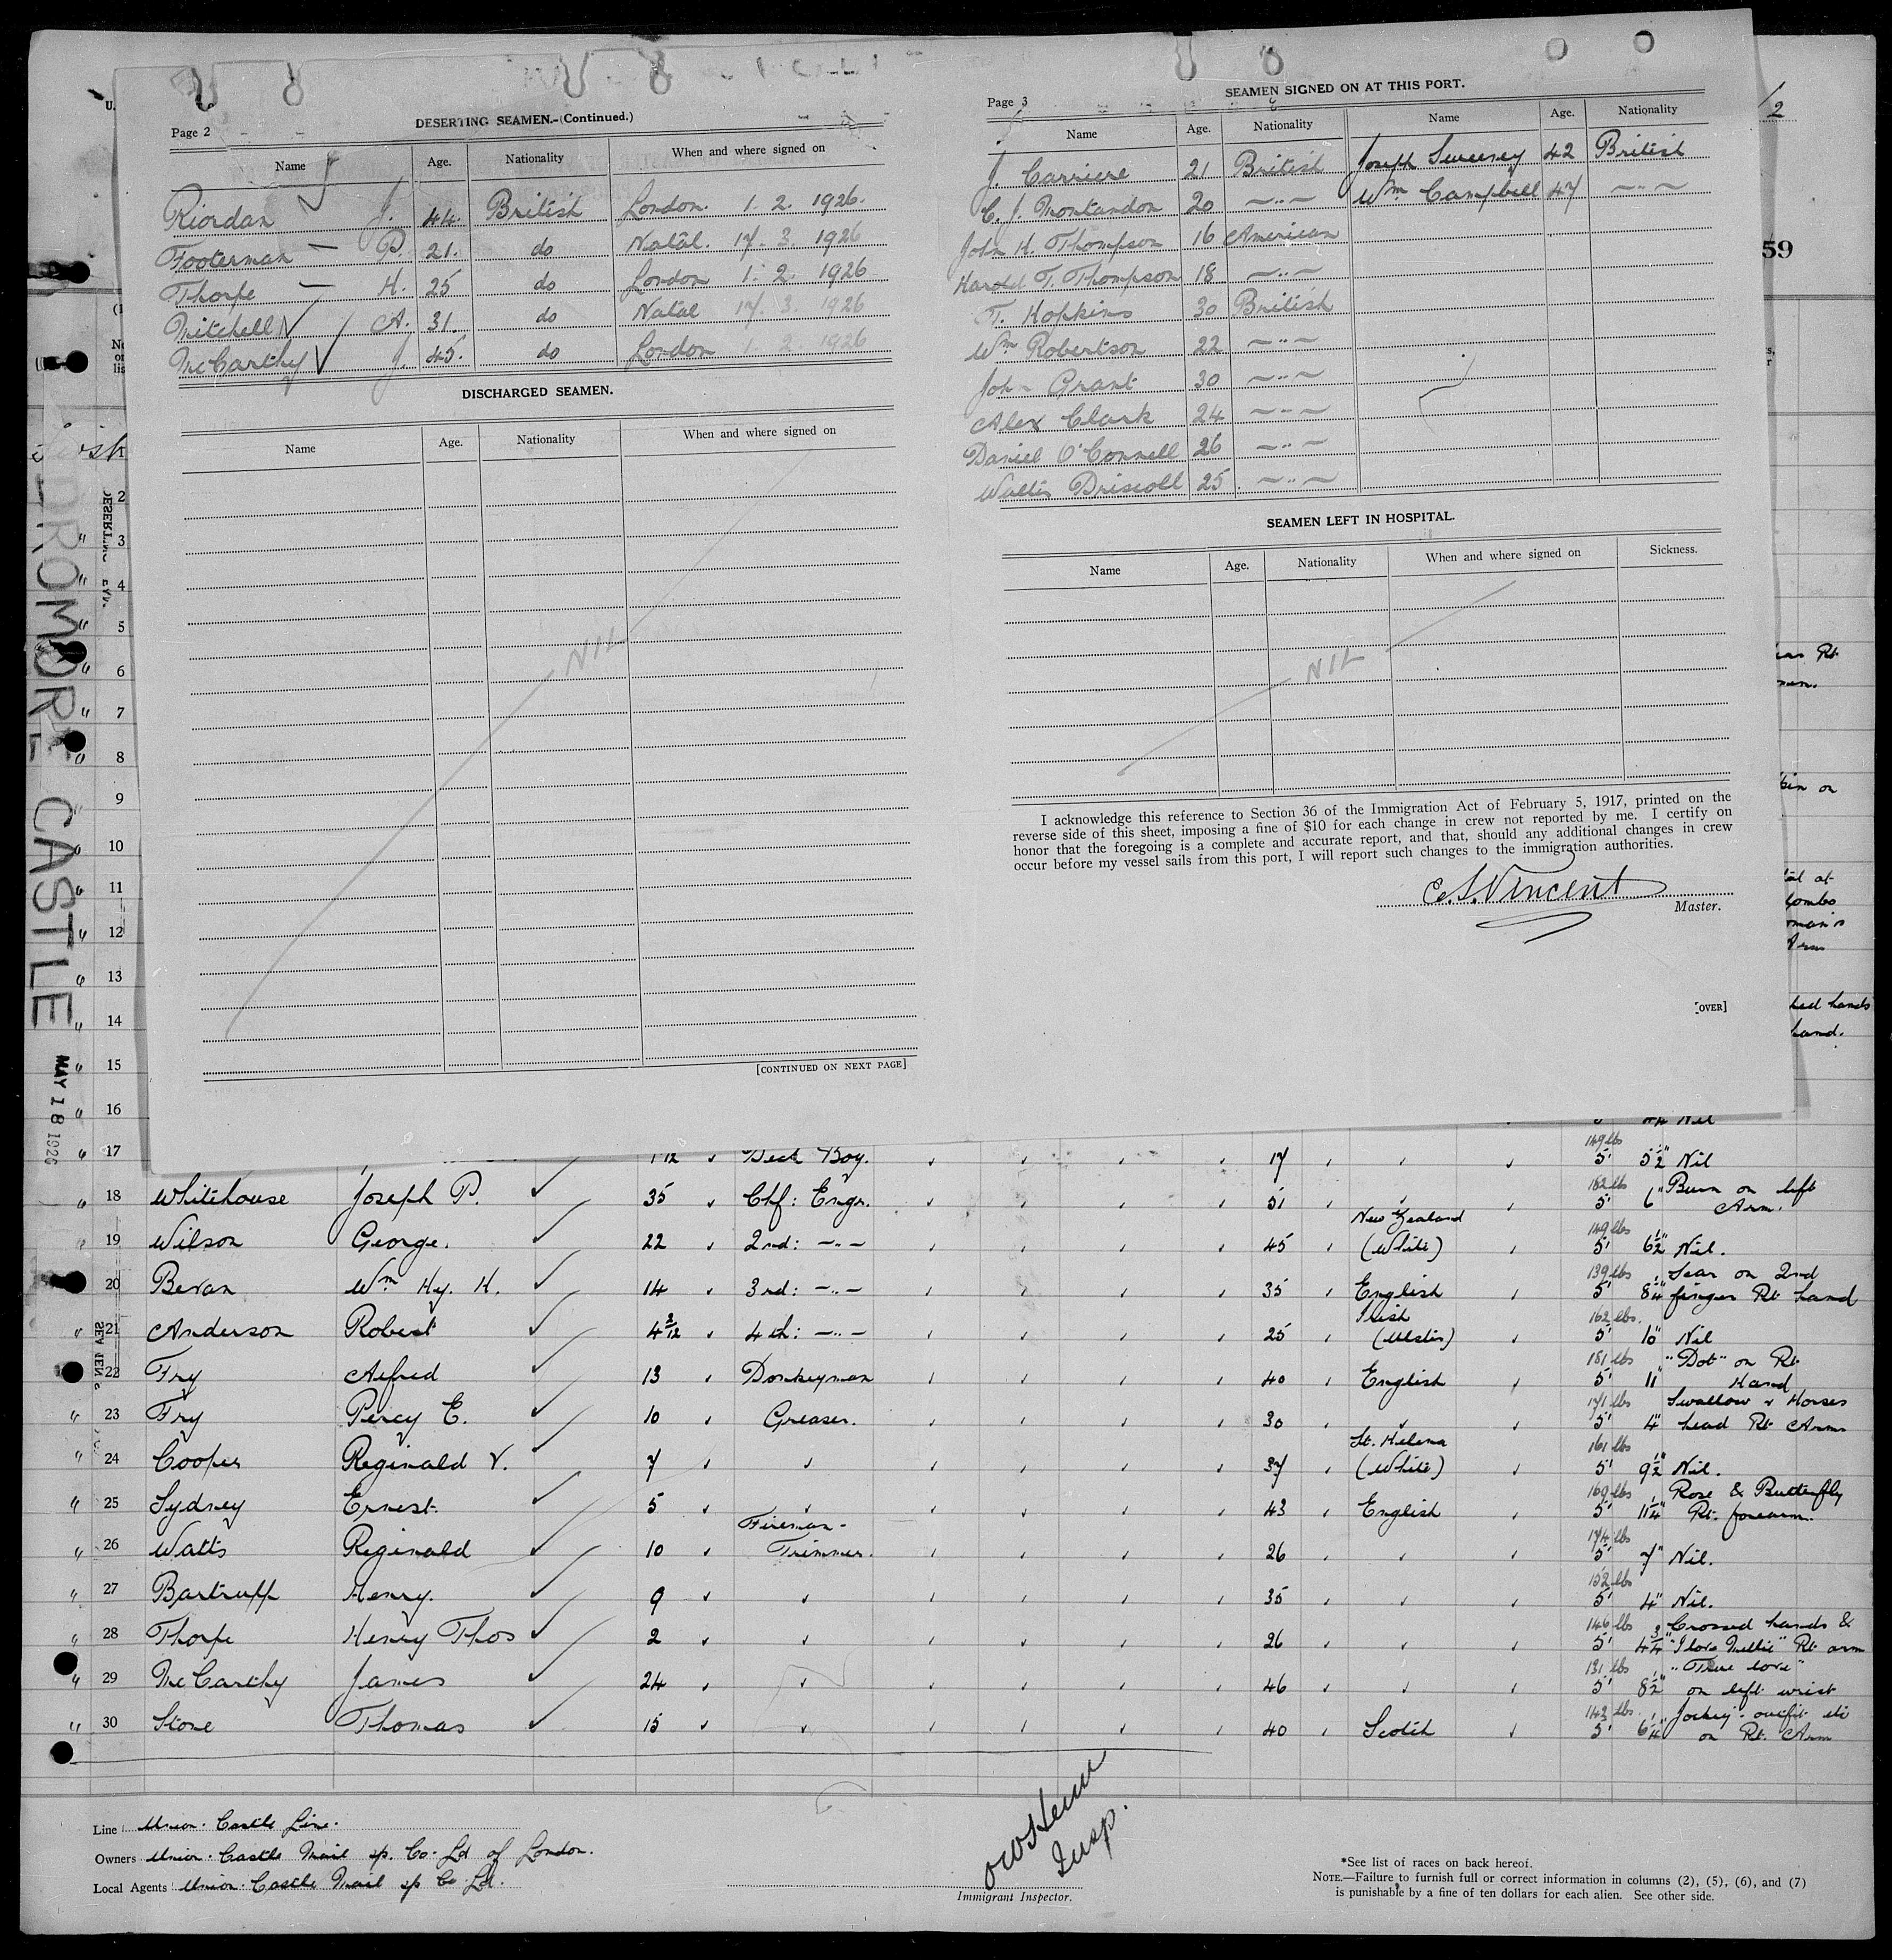 Page 2
DESERTING SEAMEN.-(Continued.)
Name Age. Nationality When and where signed on
Riordan J. 44. British London. 1. 2. 1926.
Footerman — P. 21. do Natal. 17. 3. 1926
Thorpe — H. 25 do London 1. 2. 1926
Mitchell A. 31. do Natal 17. 3. 1926
McCarthy J. 45. do London 1. 2. 1926
DISCHARGED SEAMEN.
Name Age. Nationality When and where signed on
NIL
[CONTINUED ON NEXT PAGE]
Page 3
SEAMEN SIGNED ON AT THIS PORT.
Name Age. Nationality Name Age. Nationality
J. Carriere 21 British Joseph Sweeney 42 British
C. J. Montandon 20 —"— Wm Campbell 47 —"—
John H. Thompson 16 American
Harold T. Thompson 18 —"—
T. Hopkins 30 British
Wm Robertson 22 —"—
John Grant 30 —"—
Alex Clark 24 —"—
Daniel O'Connell 26 —"—
Walter Driscoll 25 —"—
SEAMEN LEFT IN HOSPITAL.
Name Age. Nationality When and where signed on Sickness.
NIL
I acknowledge this reference to Section 36 of the Immigration Act of February 5, 1917, printed on the
reverse side of this sheet, imposing a fine of $10 for each change in crew not reported by me. I certify on
honor that the foregoing is a complete and accurate report, and that, should any additional changes in crew
occur before my vessel sails from this port, I will report such changes to the immigration authorities.
C. S. Vincent
Master.
[OVER]
DROMORE CASTLE
MAY 18 1926
59
2
3
4
5
6
7
8
9
10
11
12
13
14
15
16
17 Deck Boy. 17 149 lbs 5' 5½" Nil
18 Whitehouse Joseph P. 35 Chf: Engr. 51 182 lbs 5' 6" Burn on left Arm.
19 Wilson George. 22 2nd: —"— 45 New Zealand (White) 149 lbs 5' 6½" Nil.
20 Bevan Wm Hy. H. 14 3rd: —"— 35 English 139 lbs 5' 8¼" Scar on 2nd finger Rt hand
21 Anderson Robert 4 2/12 4th: —"— 25 Irish (Ulster) 162 lbs. 5' 10" Nil
22 Fry Alfred 13 Donkeyman 40 English 181 lbs 5' 11" "Dot" on Rt Hand
23 Fry Percy E. 10 Greaser. 30 171 lbs 5' 4" Swallow & Horses head Rt Arm
24 Cooper Reginald V. 7 37 St. Helena (White) 161 lbs 5' 9½" Nil.
25 Sydney Ernest. 5 43 English 169 lbs 5' 11¼" Rose & Butterfly Rt. forearm.
26 Watts Reginald 10 Fireman-Trimmer. 26 174 lbs 5' 7" Nil.
27 Bartrupp Henry. 9 35 132 lbs 5' 4" Nil.
28 Thorpe Henry Thos 2 26 146 lbs 5' 4¾" Crossed hands & "I love Nellie" Rt arm
29 McCarthy James 24 46 131 lbs 5' 8½" "True love" on left wrist
30 Stone Thomas 15 40 Scotch 142 lbs. 5' 6¼" Jockey-outfit etc on Rt. Arm
Line Union-Castle Line.
Owners Union-Castle Mail sp. Co. Ld of London.
Local Agents Union-Castle Mail sp Co Ld.
Insp.
Immigrant Inspector.
*See list of races on back hereof.
NOTE.—Failure to furnish full or correct information in columns (2), (5), (6), and (7)
is punishable by a fine of ten dollars for each alien. See other side.